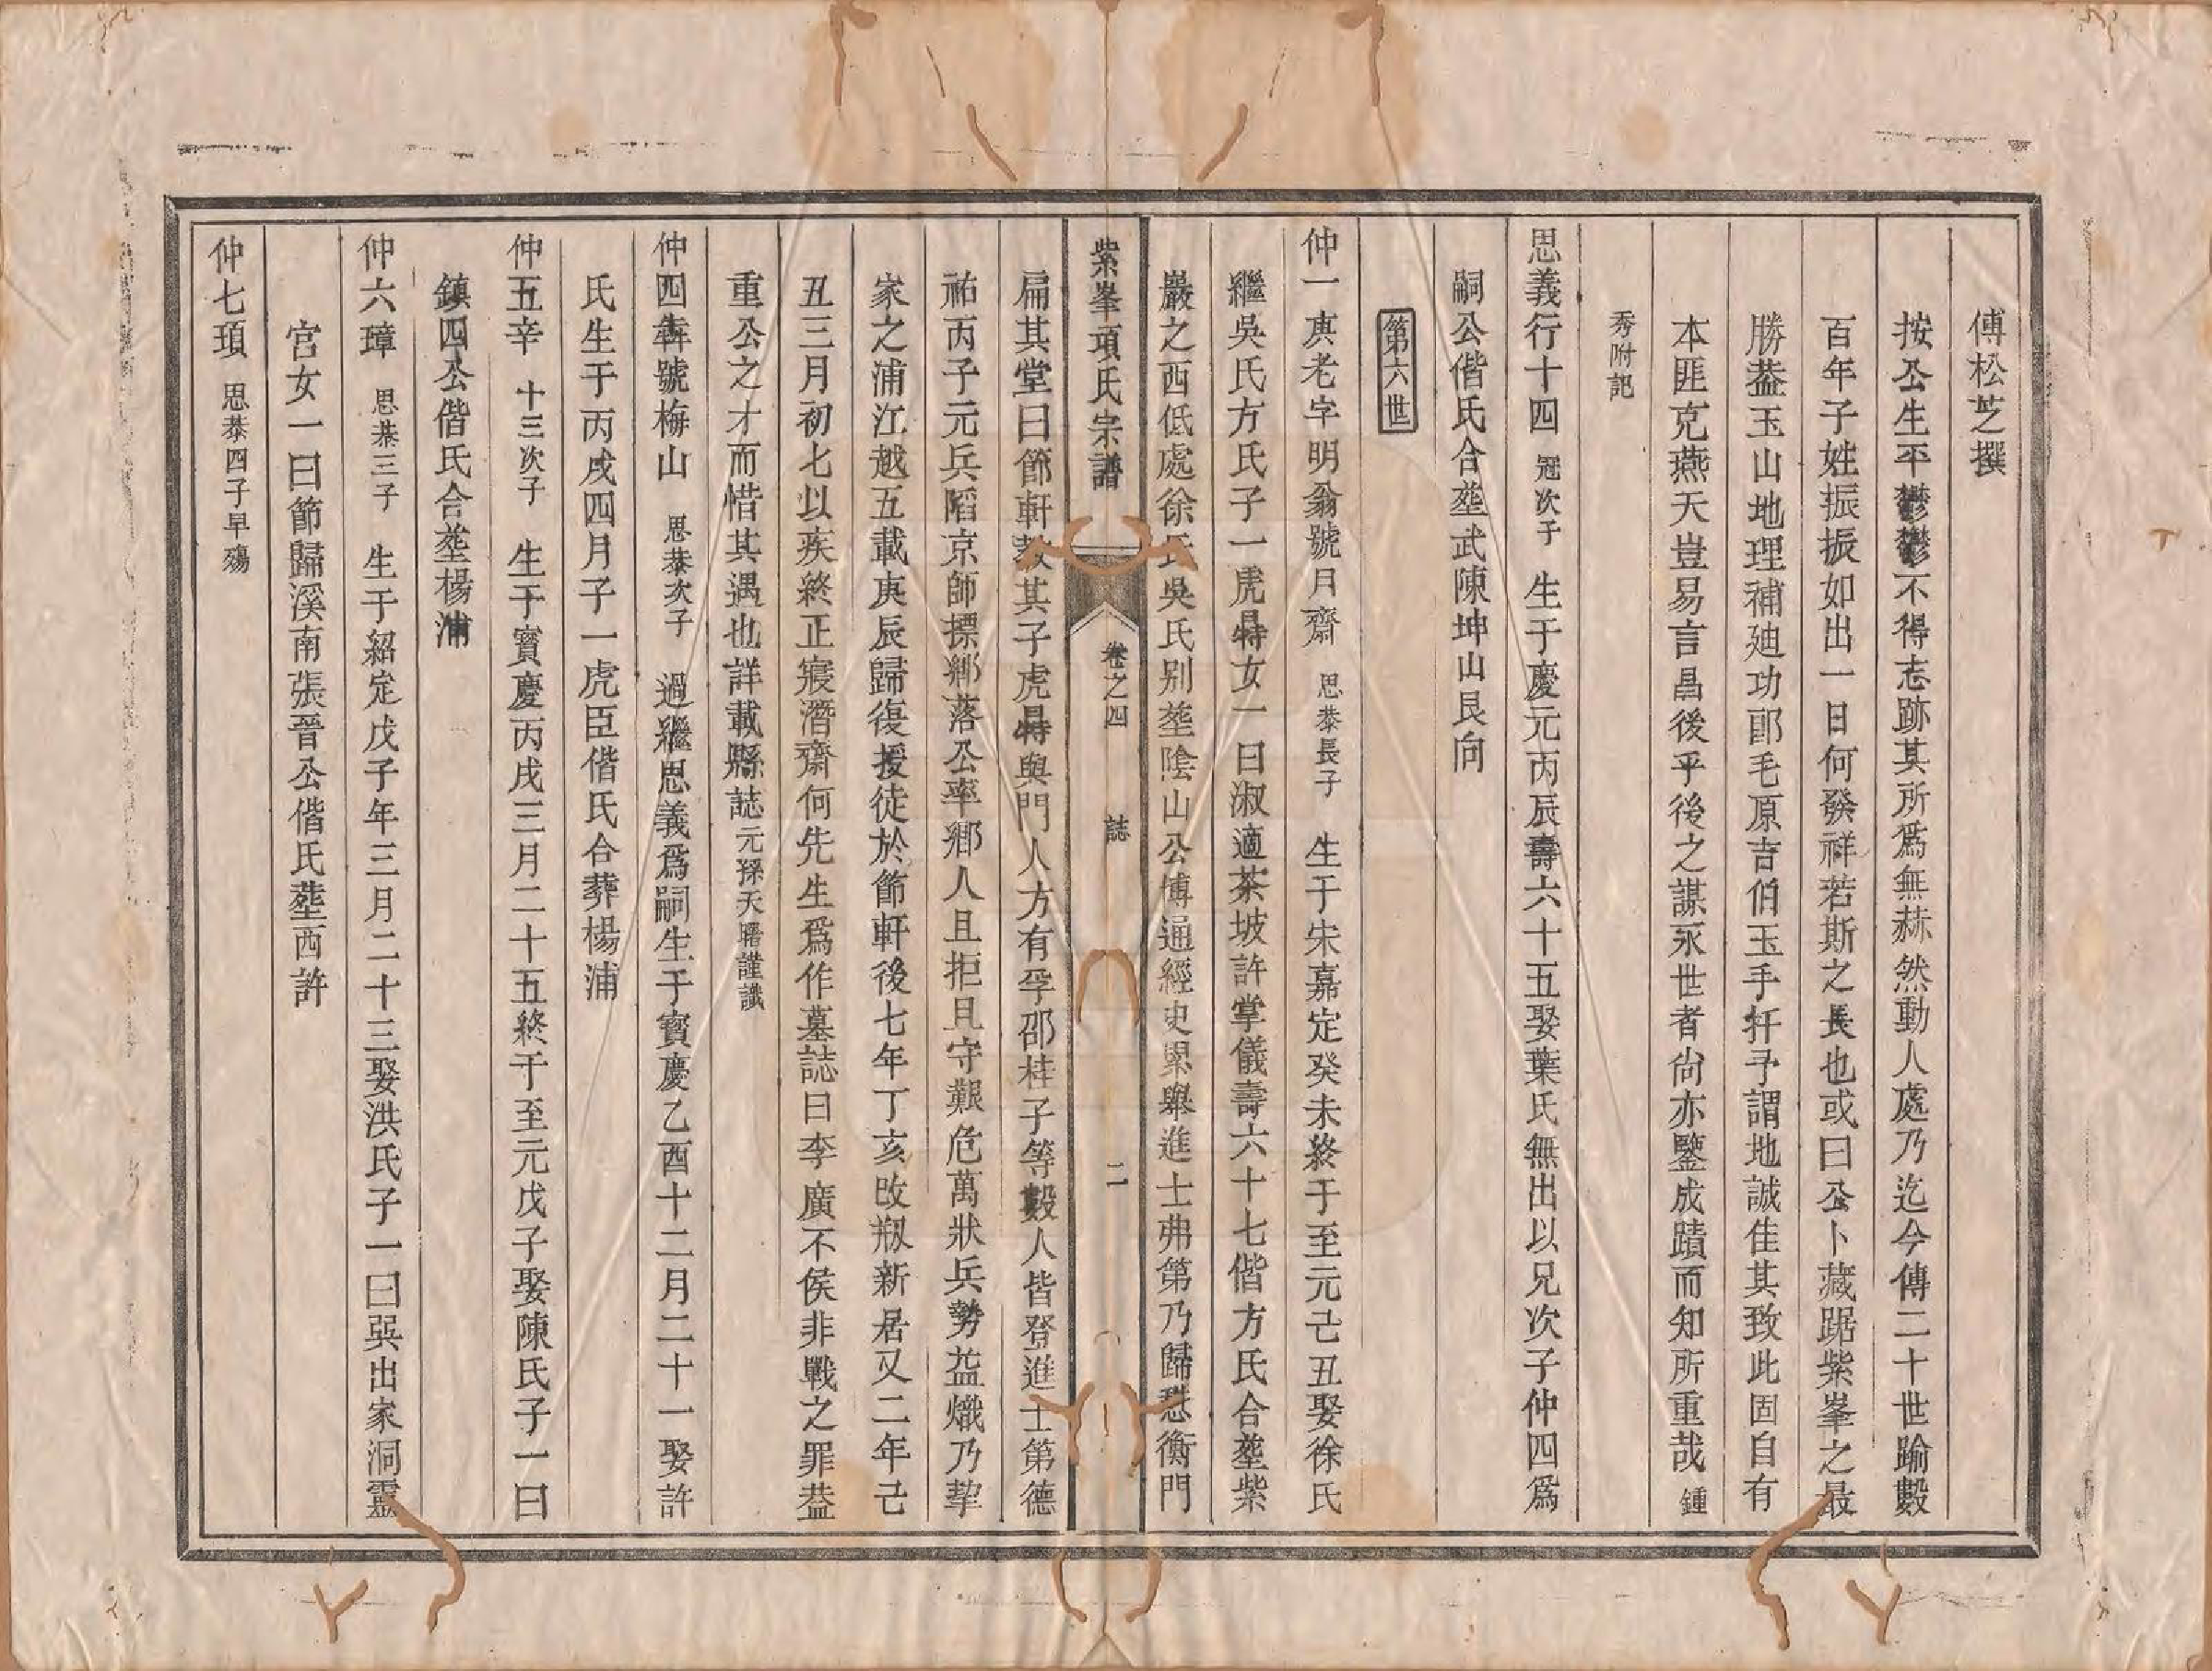 傅松芝撰
按公生平鬱鬱不得志跡其所爲無赫然動人處乃迄今傳二十世踰數
百年子姓振振如出一日何發祥若斯之長也或曰公卜藏踞紫峯之最
勝葢玉山地理補廸功郎毛原吉伯玉手扦予謂地誠佳其致此固自有
本匪克燕天豈易言昌後乎後之謀永世者尙亦鑒成蹟而知所重哉 鍾
秀附記
思義行十四 冠次子 生于慶元丙辰壽六十五娶葉氏無出以兄次子仲四爲
嗣公偕氏合塟武陳坤山艮向
第六世
仲一㝢老字明翁號月齋 思恭長子 生于宋嘉定癸未終于至元己丑娶徐氏
繼吳氏方氏子一虎特女一曰淑適茶坡許掌儀壽六十七偕方氏合塟紫
巖之西低處徐氏吳氏别塟陰山公博通經史累舉進士弗第乃歸憇衡門
紫峯項氏宗譜 卷之四 誌 二
扁其堂曰節軒敎其子虎特與門人方有孚邵桂子等數人皆登進士第德
祐丙子元兵䧟京師摽鄕落公率鄕人且拒且守艱危萬狀兵勢益熾乃挈
家之浦江越五載庚辰歸復授徒於節軒後七年丁亥改剏新居又二年己
丑三月初七以疾終正寢潛齋何先生爲作墓誌曰李廣不侯非戰之罪葢
重公之才而惜其遇也詳載縣誌 元孫天曙謹識
仲四犇號梅山 思恭次子 過繼思義爲嗣生于寶慶乙酉十二月二十一娶許
氏生于丙戌四月子一虎臣偕氏合葬楊浦
仲五辛 十三次子 生于寳慶丙戌三月二十五終于至元戊子娶陳氏子一曰
鎮四公偕氏合塟楊浦
仲六璋 思恭三子 生于紹定戊子年三月二十三娶洪氏子一曰㢲出家洞靈
宫女一曰節歸溪南張晉公偕氏塟西許
仲七頊 思恭四子早殤